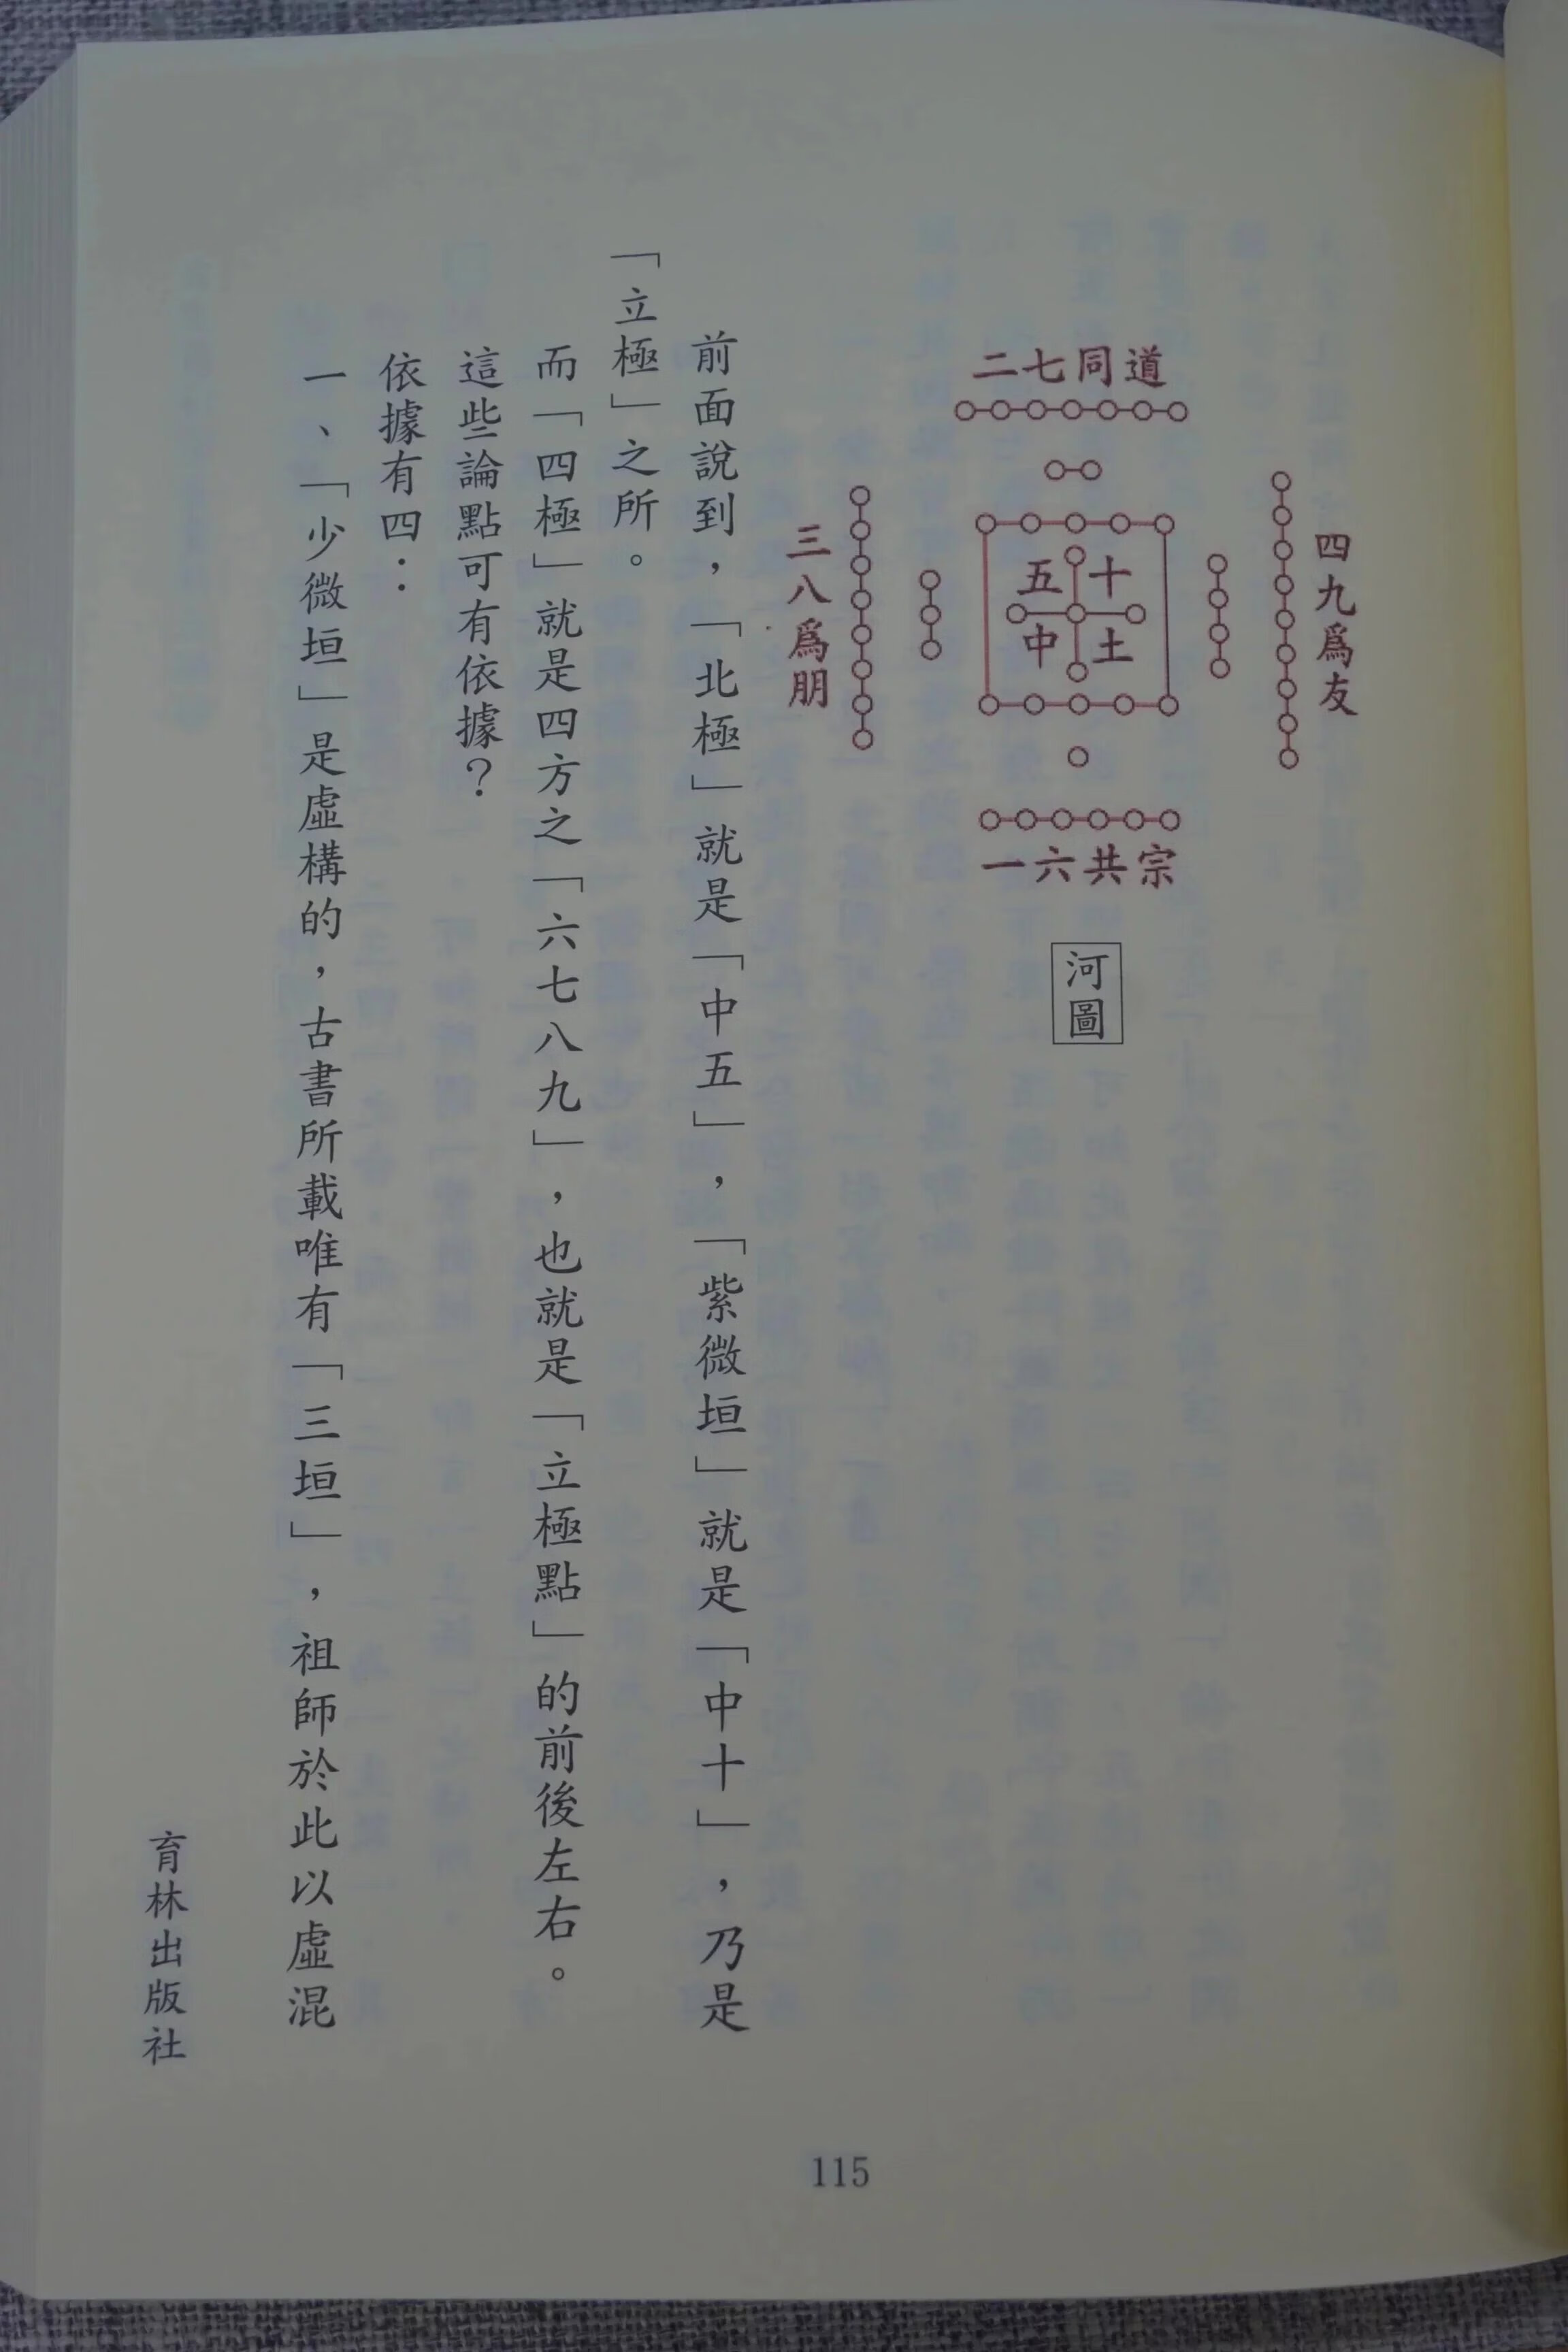 二七同道
四九爲友
十
五
土
中
三八爲朋
一六共宗
河圖
前面說到，「北極」就是「中五」，「紫微垣」就是「中十」，乃是
「立極」之所。
而「四極」就是四方之「六七八九」，也就是「立極點」的前後左右。
這些論點可有依據？
依據有四：
一、「少微垣」是虛構的，古書所載唯有「三垣」，祖師於此以虛混
育林出版社
115